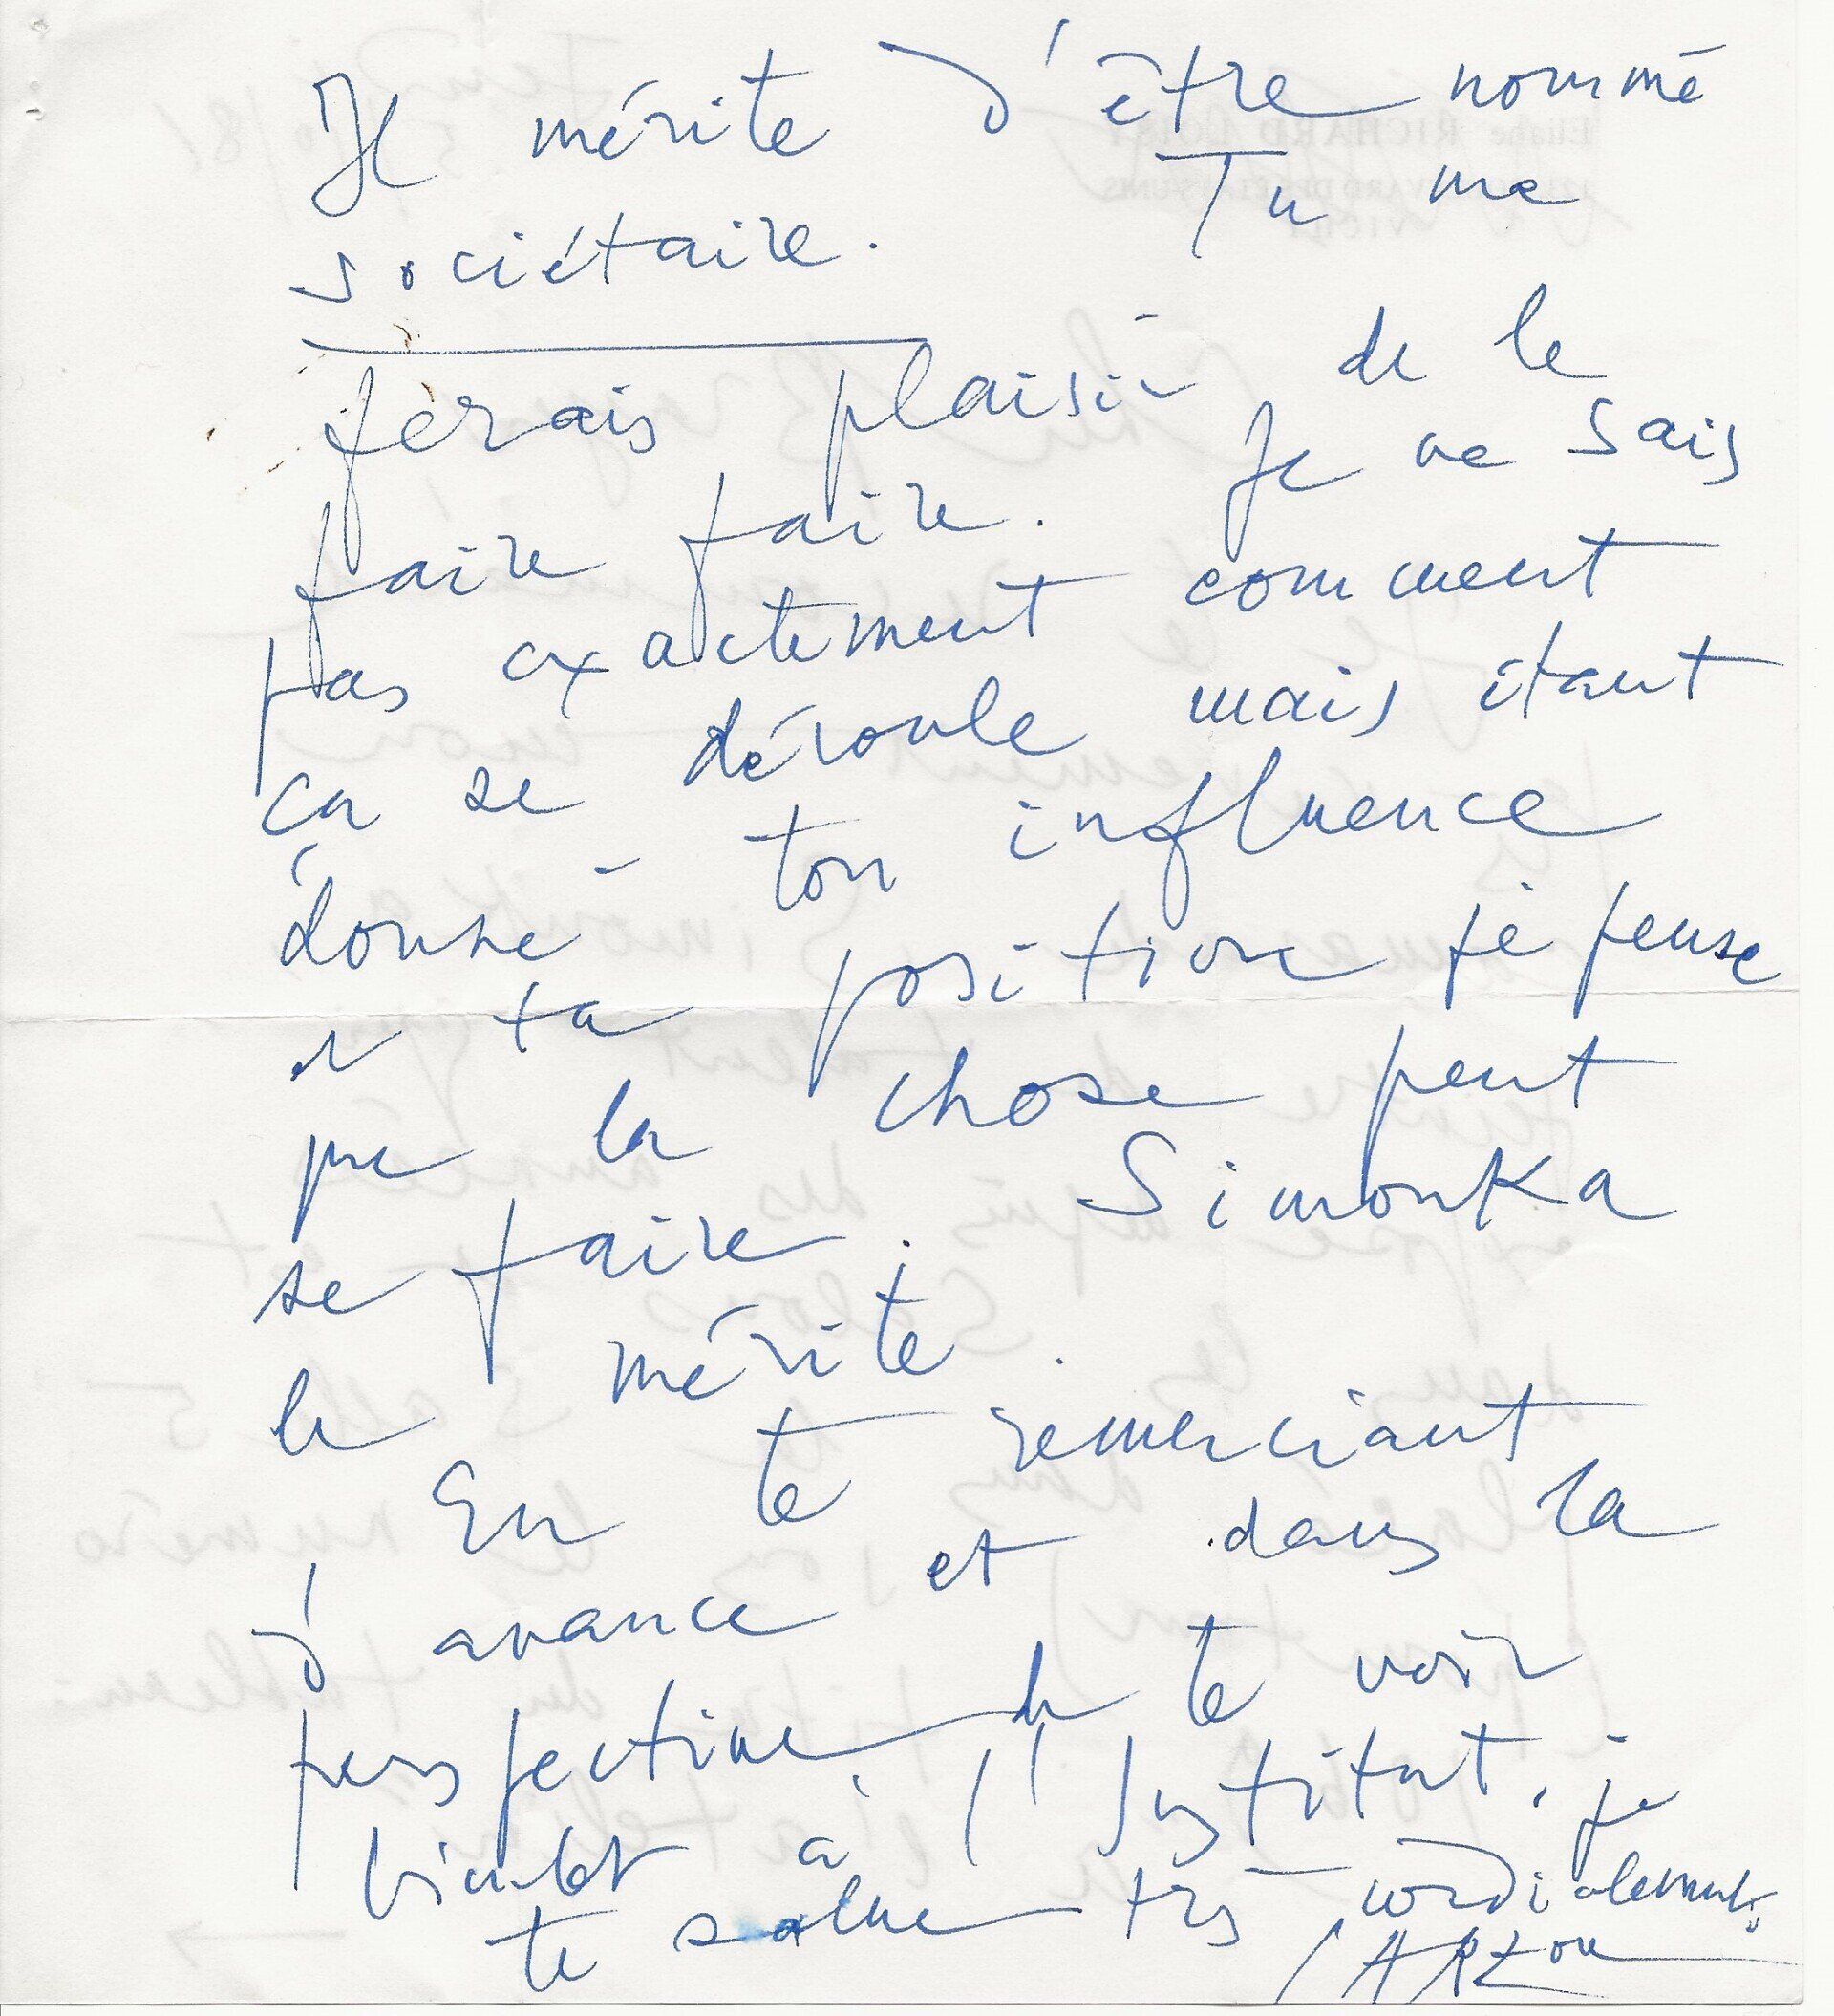 Il mérite d'être nommé
sociétaire. Tu me
ferais plaisir de le
faire faire. Je ne sais
pas exactement comment
ça se déroule mais étant
donné ton influence
et ta position je pense
que la chose peut
se faire. Simonka
le mérite.
En te remerciant
d'avance et dans la
perspective de te voir
bientôt à l'Institut, je
te salue très cordialement,
CARZou